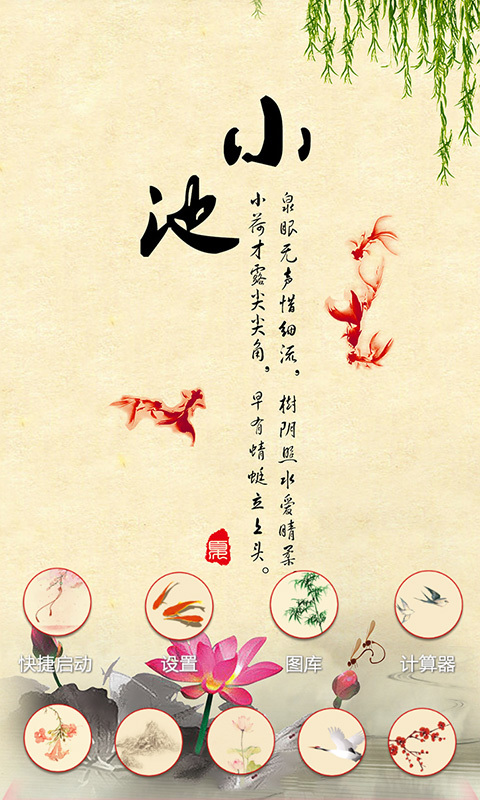 小池
泉眼无声惜细流，樹阴照水爱晴柔
小荷才露尖尖角，早有蜻蜓立上头。
快捷启动
设置
图库
计算器